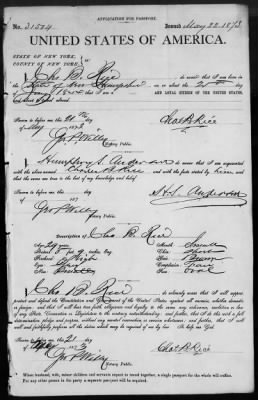 APPLICATION FOR PASSPORT.
No. 31574 Issued May 22. 1873
UNITED STATES OF AMERICA.
STATE OF NEW YORK,
COUNTY OF NEW YORK,
I, Chs B. Rice do swear that I was born in
the State of New Hampshire on the
and
Sworn to before me the 21st day
of May 1873
Chas B Rice
Geo P Willey
Notary Public.
I, Humphrey S. Anderson do swear that I am acquainted
with the above named Charles B. Rice and with the facts stated by him, and
that the same are true to the best of my knowledge and belief.
Sworn to before me
H. S. Anderson
Geo P Willey
Notary Public.
Description of Chs B. Rice
Age
Stature
Forehead High
Eyes
Nose
Mouth Small
Chin
Hair Brown
Complexion
Face Oval
I, Chs B. Rice do solemnly swear that I will support,
protect and defend the Constitution and Government of the United States against all enemies, whether domestic
or foreign; and that I will bear true faith, allegiance and loyalty to the same, any ordinance, resolution or law
of any State, Convention or Legislature to the contrary notwithstanding; and further, that I do this with a full determination,
pledge and purpose, without any mental reservation or evasion whatsoever; and further, that I will
well and faithfully perform all the duties which may be required of me by law. So help me God.
Sworn to before me 21 day
of May 1873
Chas B Rice
Geo P Willey
Notary Public.
When husband, wife, minor children and servants expect to travel together, a single passport for the whole will suffice.
For any other person in the party a separate passport will be required.